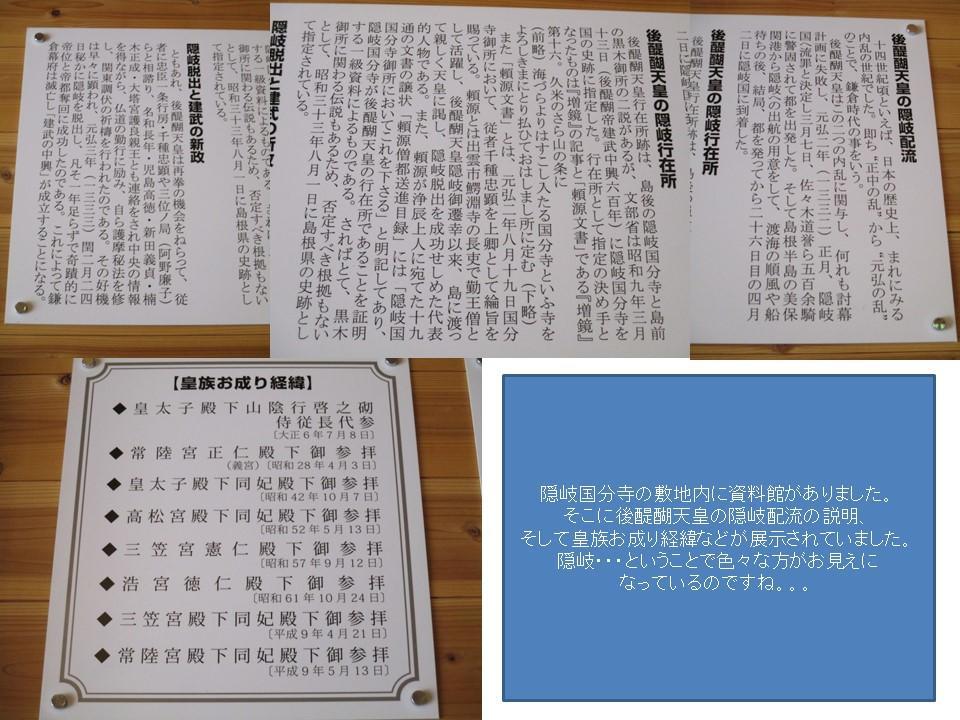 後醍醐天皇の隠岐配流
十四世紀頃といえば、日本の歴史上、まれにみる
内乱の世紀でした。即ち〝正中の乱〟から〝元弘の乱〟
のことで、鎌倉時代の事をいう。
後醍醐天皇はこの二つの内乱に関与し、何れも討幕
計画に失敗し、元弘二年（一三三二）正月、隠岐
国へ流罪と決定し三月七日、佐々木道誉ら五百余騎
に警固されて都を出発した。そして島根半島の美保
関港から隠岐への出航の用意をして、渡海の順風や船
待ちの後、結局、都を発ってから二十六日目の四月
二日に隠岐国に到着した。
後醍醐天皇の隠岐行在所
後醍醐天皇の隠岐行在所
後醍醐天皇行在所跡は、島後の隠岐国分寺と島前
の黒木御所の二説があるが、文部省は昭和九年三月
十三日（後醍醐帝建武中興六百年）に隠岐国分寺を
国の史跡に指定した。行在所として指定の決め手と
なったものは『増鏡』の記事と「頼源文書」である『増鏡』
第十六。久米のさら山の条に
（前略）海づらよりはすこし入たる国分寺といふ寺を
よろしきさまにとり払ひておはしまし所に定む（下略）
また「頼源文書」とは、元弘二年八月十九日国分
寺御所において、従者千種忠顕を上卿として綸旨を
賜っている。頼源とは出雲市鰐淵寺の長吏で勤王僧と
して活躍し、後醍醐天皇隠岐御遷幸以来、島に渡っ
て親しく天皇に謁し、隠岐脱出を成功せしめた代表
的人物である。また、頼源が浄辰上人に宛てた十九
通の文書の譲状「頼源僧都送進目録」には「隠岐国
国分寺御所においてこれを下さる」と明記してあり、
隠岐国分寺が後醍醐天皇の行在所であることを証明
する一級資料によるものです。さればとて、黒木
御所に関わる伝説もあるため、否定すべき根拠もない
として、昭和三十三年八月一日に島根県の史跡とし
て指定されている。
隠岐脱出と建武の新政
する一級資料によるもので
御所に関わる伝説もあるため、否定すべき根拠もない
として、昭和三十三年八月一日に島根県の史跡とし
て指定されている。
隠岐脱出と建武の新政
ともあれ、後醍醐天皇は再拳の機会をねらって、従
者に忠臣一条行房・千種忠顕や三位ノ局（阿野廉子）
らと相諮り、名和長年・児島高徳・新田義貞・楠
木正成・大塔宮護良親王とも連絡をされ中央の情報
を得ながら、仏道の勤行に励み、自ら護摩秘法を修
し、関東調伏の祈祷を行われたのである。その好機
は早々に顕われ、元弘三年（一三三三）閏二月二四
日秘かに隠岐を脱出し、凡そ一年足らずで奇蹟的に
帝位と帝都奪回に成功したのである。これによって鎌
倉幕府は滅亡し「建武の中興」が成立することになる。
【皇族お成り経緯】
◆皇太子殿下山陰行啓之砌
侍従長代参
〔大正6年7月8日〕
◆常陸宮正仁殿下御参拝
（義宮）〔昭和28年4月3日〕
◆皇太子殿下同妃殿下御参拝
〔昭和42年10月7日〕
◆高松宮殿下同妃殿下御参拝
〔昭和52年5月13日〕
◆三笠宮憲仁殿下御参拝
〔昭和57年9月12日〕
◆浩宮徳仁殿下御参拝
〔昭和61年10月24日〕
◆三笠宮殿下同妃殿下御参拝
〔平成9年4月21日〕
◆常陸宮殿下同妃殿下御参拝
〔平成9年5月13日〕
隠岐国分寺の敷地内に資料館がありました。
そこに後醍醐天皇の隠岐配流の説明、
そして皇族お成り経緯などが展示されていました。
隠岐・・・ということで色々な方がお見えに
なっているのですね。。。